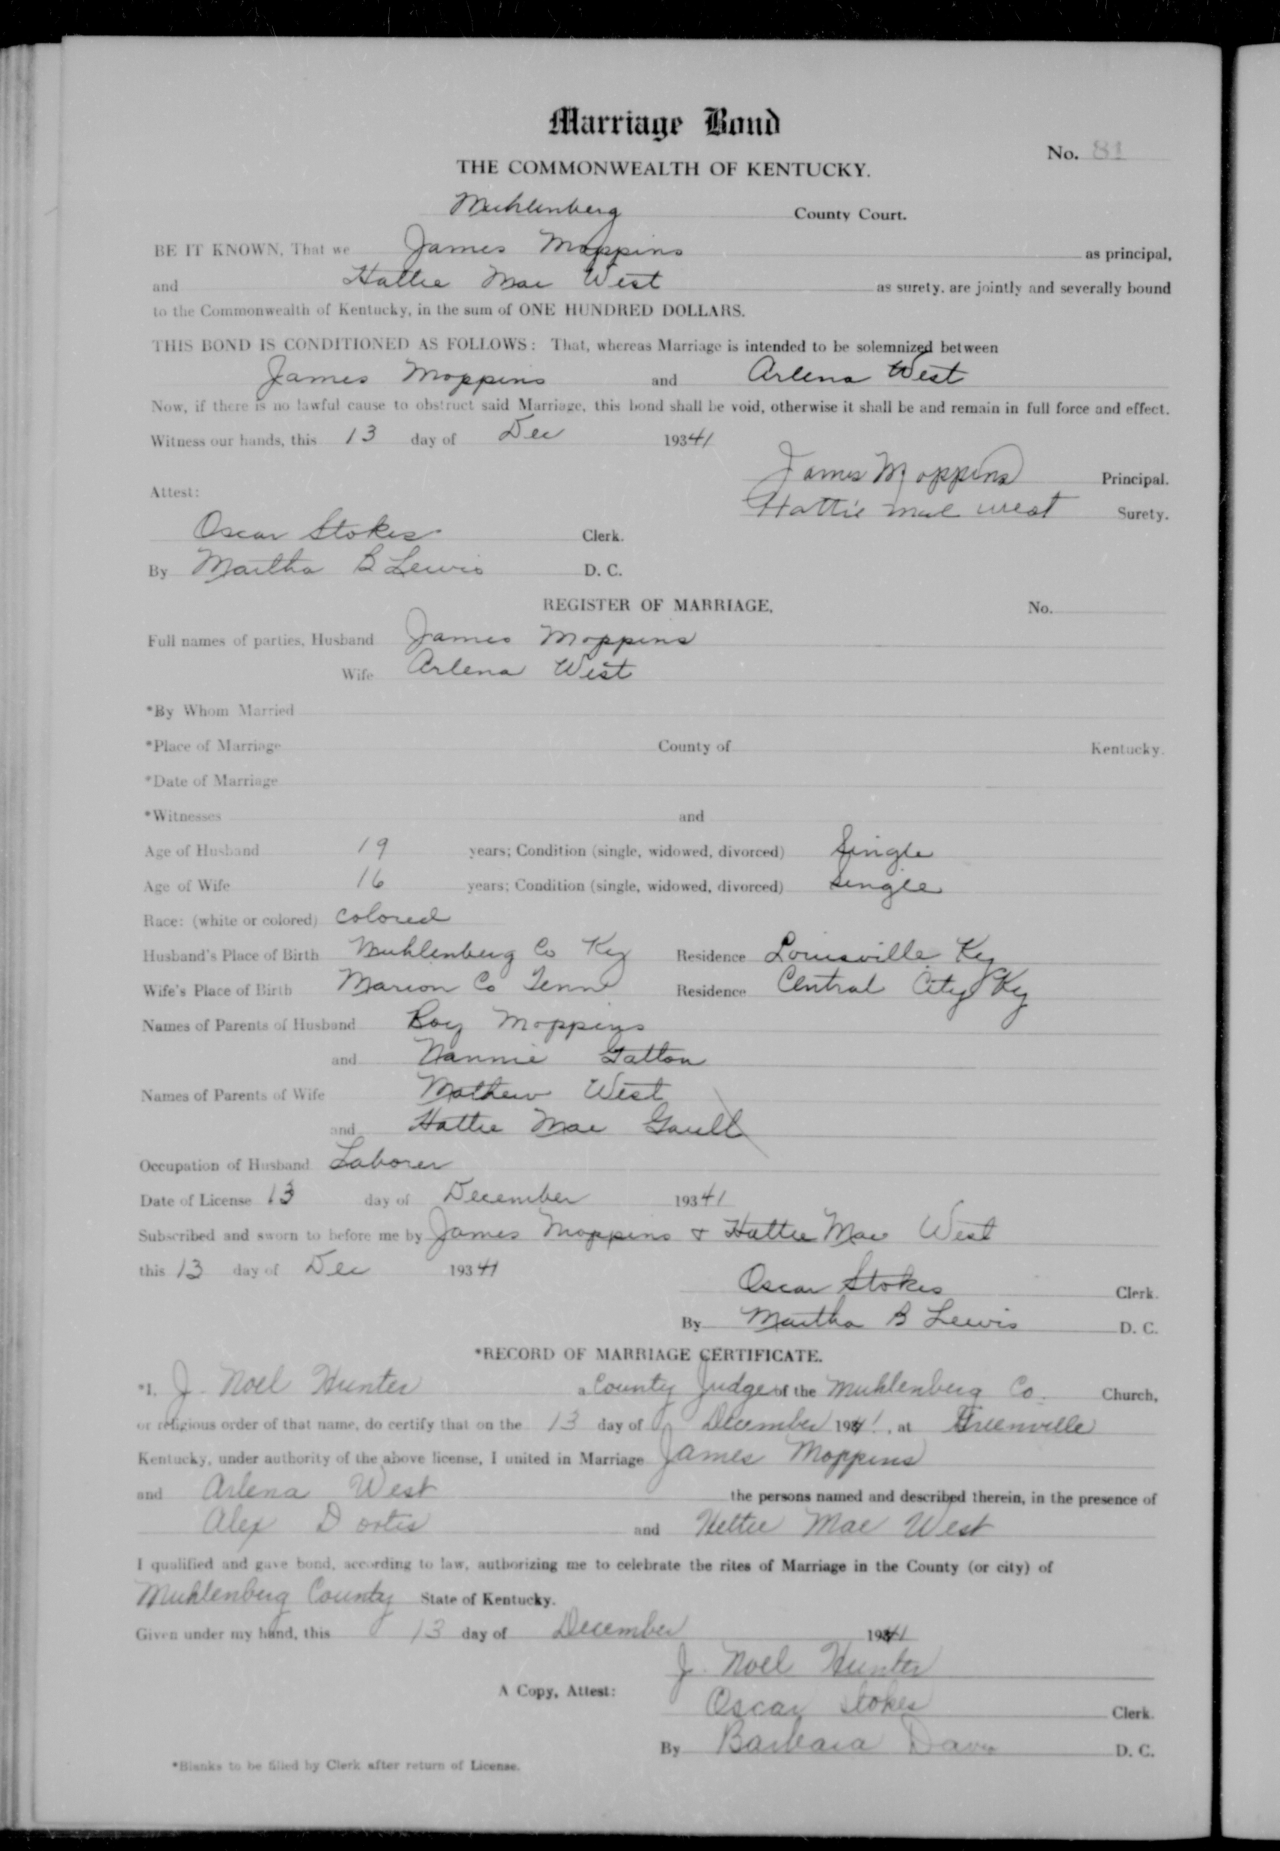 Marriage Bond
No. 81
THE COMMONWEALTH OF KENTUCKY.
Muhlenberg County Court.
BE IT KNOWN, That we James Moppins as principal,
and Hattie Mae West as surety, are jointly and severally bound
to the Commonwealth of Kentucky, in the sum of ONE HUNDRED DOLLARS.
THIS BOND IS CONDITIONED AS FOLLOWS: That, whereas Marriage is intended to be solemnized between
James Moppins and Arlena West
Now, if there is no lawful cause to obstruct said Marriage, this bond shall be void, otherwise it shall be and remain in full force and effect.
Witness our hands, this 13 day of Dec 19341
James Moppins Principal.
Attest:
Hattie Mae West Surety.
Oscar Stokes Clerk.
By Martha B Lewis D. C.
REGISTER OF MARRIAGE, No.
Full names of parties, Husband James Moppins
Wife Arlena West
*By Whom Married
*Place of Marriage County of Kentucky.
*Date of Marriage
*Witnesses and
Age of Husband 19 years; Condition (single, widowed, divorced) Single
Age of Wife 16 years; Condition (single, widowed, divorced) Single
Race: (white or colored) colored
Husband's Place of Birth Muhlenberg Co Ky Residence Louisville Ky
Wife's Place of Birth Marion Co Tenn Residence Central City Ky
Names of Parents of Husband Roy Moppins
and Nannie Gatton
Names of Parents of Wife Mathew West
and Hattie Mae Gaull
Occupation of Husband Laborer
Date of License 13 day of December 19341
Subscribed and sworn to before me by James Moppins & Hattie Mae West
this 13 day of Dec 19341
Oscar Stokes Clerk.
By Martha B Lewis D. C.
*RECORD OF MARRIAGE CERTIFICATE.
*I, J. Noel Hunter a County Judge of the Muhlenberg Co. Church,
or religious order of that name, do certify that on the 13 day of December 1941, at Greenville
Kentucky, under authority of the above license, I united in Marriage James Moppins
and Arlena West the persons named and described therein, in the presence of
Alex and Hettie Mae West
I qualified and gave bond, according to law, authorizing me to celebrate the rites of Marriage in the County (or city) of
Muhlenberg County State of Kentucky.
Given under my hand, this 13 day of December 1941
J. Noel Hunter
A Copy, Attest:
Oscar Stokes Clerk.
By Barbara Davis D. C.
*Blanks to be filled by Clerk after return of License.